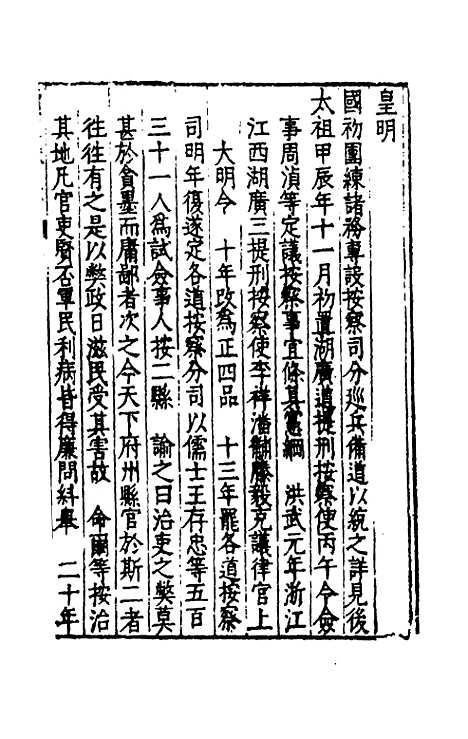 皇明
國初團練諸務專設按察司分巡兵備道以統之詳見後
太祖甲辰年十一月初置湖廣道提刑按察使丙午令僉
事周湞等定議按察事宜條具憲綱 洪武元年浙江
江西湖廣三提刑按察使李祥潘黼滕毅充議律官上
大明令 十年改爲正四品 十三年罷各道按察
司明年復遂定各道按察分司以儒士王存忠等五百
三十一人爲試僉事人按二縣 諭之曰治吏之弊莫
甚於貪墨而庸鄙者次之今天下府州縣官於斯二者
往往有之是以弊政日滋民受其害故 命爾等按治
其地凡官吏賢否軍民利病皆得廉問糾舉 二十年